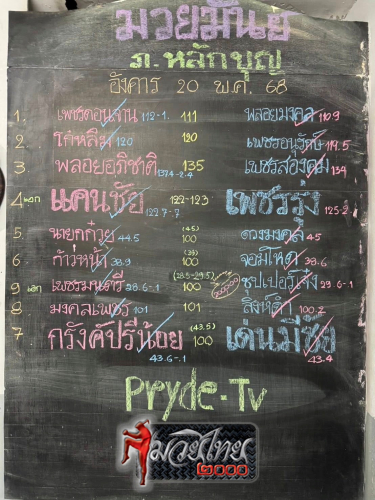 มวยมันส์
ภ.หลักบุญ
อังคาร 20 พ.ค. 68
1. เพชรดอนจาน 112-.1. 111 พลอยมงคล 110.9
2. โก๋หลีม 120 120 เพชรอนุรักษ์ 119.5
3 พลอยอภิชาติ 137.4-2.4 135 เพชรสองคม 134
4 เอก แดนชัย 122.7-.7 122-123 เพชรรุ่ง 125-2
5. นายกก๋วย 44.5 (45) 100 ดวงมงคล 45
6. ก้าวหน้า 38.9 (39) 100 จอมโหด 38.6
9 เอก เพชรมนตรี 28.6-.1 (28.5-29.5) 100 ซุปเปอร์เจ๋ง 29.6-.1
8 มงคลเพชร 101 101 สิงห์ดำ 100.2
7 กรังค์ปรีน้อย 43.6-.1 (43.5) 100 เด่นมีชัย 43.4
Pryde-Tv
มวยไทย
๒๐๐๐